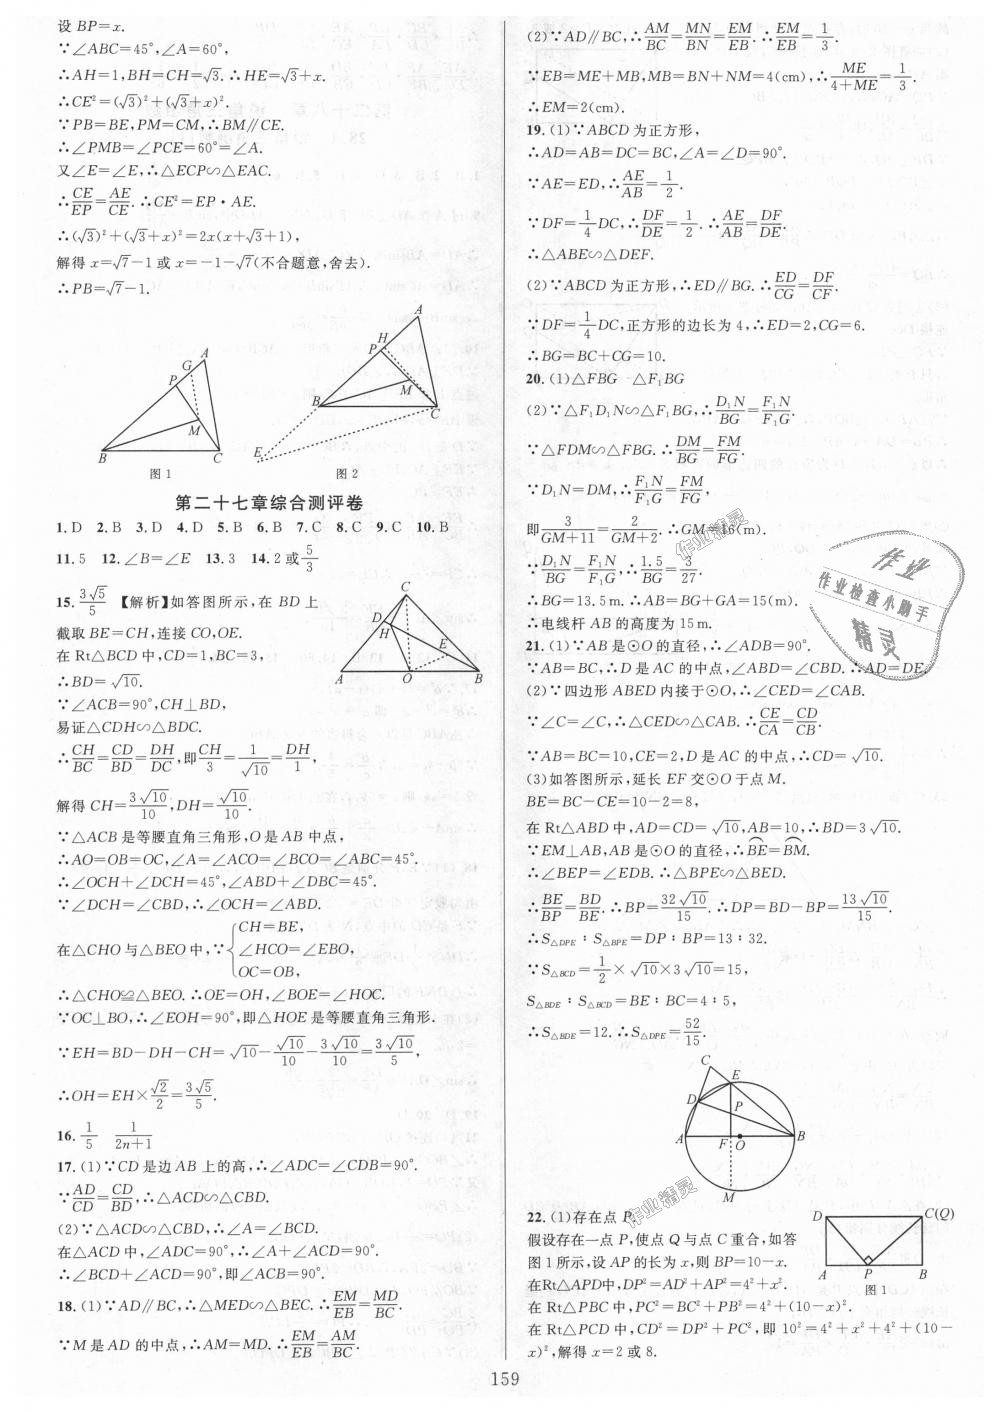 设BP=x.
∵∠ABC=45°,∠A=60°,
∴AH=1,BH=CH=√3.∴HE=√3+x.
∴CE²=(√3)²+(√3+x)².
∵PB=BE,PM=CM,∴BM∥CE.
∴∠PMB=∠PCE=60°=∠A.
又∠E=∠E,∴△ECP∽△EAC.
∴CE/EP=AE/CE.∴CE²=EP·AE.
∴(√3)²+(√3+x)²=2x(x+√3+1),
解得x=√7-1或x=-1-√7(不合题意,舍去).
∴PB=√7-1.
A G P M B C
图1
A H P M B C E
图2
第二十七章综合测评卷
1.D 2.B 3.D 4.D 5.B 6.B 7.C 8.C 9.C 10.B
11.5 12.∠B=∠E 13.3 14.2或5/3
15.3√5/5 【解析】如答图所示,在BD上
截取BE=CH,连接CO,OE.
在Rt△BCD中,CD=1,BC=3,
∴BD=√10.
∵∠ACB=90°,CH⊥BD,
易证△CDH∽△BDC.
C D H E A O B
∴CH/BC=CD/BD=DH/DC,即CH/3=1/√10=DH/1,
解得CH=3√10/10,DH=√10/10.
∵△ACB是等腰直角三角形,O是AB中点,
∴AO=OB=OC,∠A=∠ACO=∠BCO=∠ABC=45°.
∴∠OCH+∠DCH=45°,∠ABD+∠DBC=45°.
∵∠DCH=∠CBD,∴∠OCH=∠ABD.
在△CHO与△BEO中,∵{CH=BE,
∠HCO=∠EBO,
OC=OB,
∴△CHO≌△BEO.∴OE=OH,∠BOE=∠HOC.
∵OC⊥BO,∴∠EOH=90°,即△HOE是等腰直角三角形.
∵EH=BD-DH-CH=√10-√10/10-3√10/10=3√10/5,
∴OH=EH×√2/2=3√5/5.
16.1/5 1/(2n+1)
17.(1)∵CD是边AB上的高,∴∠ADC=∠CDB=90°.
∵AD/CD=CD/BD,∴△ACD∽△CBD.
(2)∵△ACD∽△CBD,∴∠A=∠BCD.
在△ACD中,∠ADC=90°,∴∠A+∠ACD=90°.
∴∠BCD+∠ACD=90°,即∠ACB=90°.
18.(1)∵AD∥BC,∴△MED∽△BEC.∴EM/EB=MD/BC.
∵M是AD的中点,∴AM=MD.∴EM/EB=AM/BC.
(2)∵AD∥BC,∴AM/BC=MN/BN=EM/EB.∴EM/EB=1/3.
∵EB=ME+MB,MB=BN+NM=4(cm),∴ME/(4+ME)=1/3.
∴EM=2(cm).
19.(1)∵ABCD为正方形,
∴AD=AB=DC=BC,∠A=∠D=90°.
∵AE=ED,∴AE/AB=1/2.
∵DF=1/4DC,∴DF/DE=1/2.∴AE/AB=DF/DE.
∴△ABE∽△DEF.
(2)∵ABCD为正方形,∴ED∥BG.∴ED/CG=DF/CF.
∵DF=1/4DC,正方形的边长为4,∴ED=2,CG=6.
∴BG=BC+CG=10.
20.(1)△FBG △F₁BG
(2)∵△F₁D₁N∽△F₁BG,∴D₁N/BG=F₁N/F₁G.
∵△FDM∽△FBG.∴DM/BG=FM/FG.
∵D₁N=DM,∴F₁N/F₁G=FM/FG,
即3/(GM+11)=2/(GM+2).∴GM=16(m).
∵D₁N/BG=F₁N/F₁G,∴1.5/BG=3/27.
∴BG=13.5m.∴AB=BG+GA=15(m).
∴电线杆AB的高度为15m.
21.(1)∵AB是⊙O的直径,∴∠ADB=90°.
∵AB=BC,∴D是AC的中点,∠ABD=∠CBD.∴AD=DE.
(2)∵四边形ABED内接于⊙O,∴∠CED=∠CAB.
∵∠C=∠C,∴△CED∽△CAB.∴CE/CA=CD/CB.
∵AB=BC=10,CE=2,D是AC的中点,∴CD=√10.
(3)如答图所示,延长EF交⊙O于点M.
BE=BC-CE=10-2=8,
在Rt△ABD中,AD=CD=√10,AB=10,∴BD=3√10.
∵EM⊥AB,AB是⊙O的直径,∴BE⌒=BM⌒.
∴∠BEP=∠EDB.∴△BPE∽△BED.
∴BE/BP=BD/BE.∴BP=32√10/15.∴DP=BD-BP=13√10/15.
∴S△DPE:S△BPE=DP:BP=13:32.
∵S△BCD=1/2×√10×3√10=15,
S△BDE:S△BCD=BE:BC=4:5,
∴S△BDE=12.∴S△DPE=52/15.
C E D P A F O B M
22.(1)存在点P.
假设存在一点P,使点Q与点C重合,如答
图1所示,设AP的长为x,则BP=10-x.
在Rt△APD中,DP²=AD²+AP²=4²+x².
在Rt△PBC中,PC²=BC²+PB²=4²+(10-x)².
在Rt△PCD中,CD²=DP²+PC²,即10²=4²+x²+4²+(10-
x)²,解得x=2或8.
D C(Q) A P B
图1
作业
作业检查小助手
精灵
作业精灵
作业精灵
159